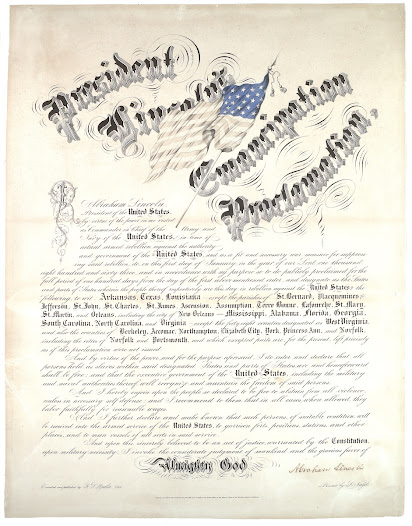 President
Lincoln's
Emancipation
Proclamation.
Abraham Lincoln
President of the United States,
by virtue of the power in me vested
as Commander in Chief of the Army and
Navy of the United States, in time of
actual armed rebellion against the authority
and government of the United States and as a fit and necessary war measure for suppress
ing said rebellion, do, on this first day of January in the year of our Lord one thousand
eight hundred and sixty three, and in accordance with my purpose so to do publicly proclaimed for the
full period of one hundred days from the day
the following to wit: Arkansas, Texas, Louisiana except the parishes of St. Bernard, Placquemines,
Jefferson, St. John, St. Charles, St. James, Ascension, Assumption, Terre Bonne, Lafourche, St. Mary,
St. Martin, and Orleans, including the city of New Orleans — Mississippi, Alabama, Florida, Georgia,
South Carolina, North Carolina, and Virginia except the forty eight counties designated as West Virginia
and also the counties of Berkeley, Accomac, Northampton, Elizabeth City, York, Princess Ann, and Norfolk,
including the cities of Norfolk and Portsmouth, and which excepted parts are, for the present left precisely
as if this proclamation were not issued.
And by virtue of the power, and for the purpose aforesaid I do order and declare that all
persons held as slaves within said designated States and parts of States are and henceforward
shall be free; and that the executive government of the United States, including the military
and naval authorities thereof will recognize and maintain the freedom of said persons.
And I hereby enjoin upon the people so declared to be free to abstain from all violence,
unless in necessary self defence, and I recommend to them that in all cases when allowed they
labor faithfully for reasonable wages.
And I further declare and make known that such persons of suitable condition will
be received into the armed service of the United States, to garrison forts, positions, stations, and other
places, and to man vessels of all sorts in said service.
And upon this sincerely believed to be an act of justice, warranted by the Constitution,
upon military necessity, I invoke the considerate judgment of mankind and the gracious favor of
Almighty God
Abraham Lincoln